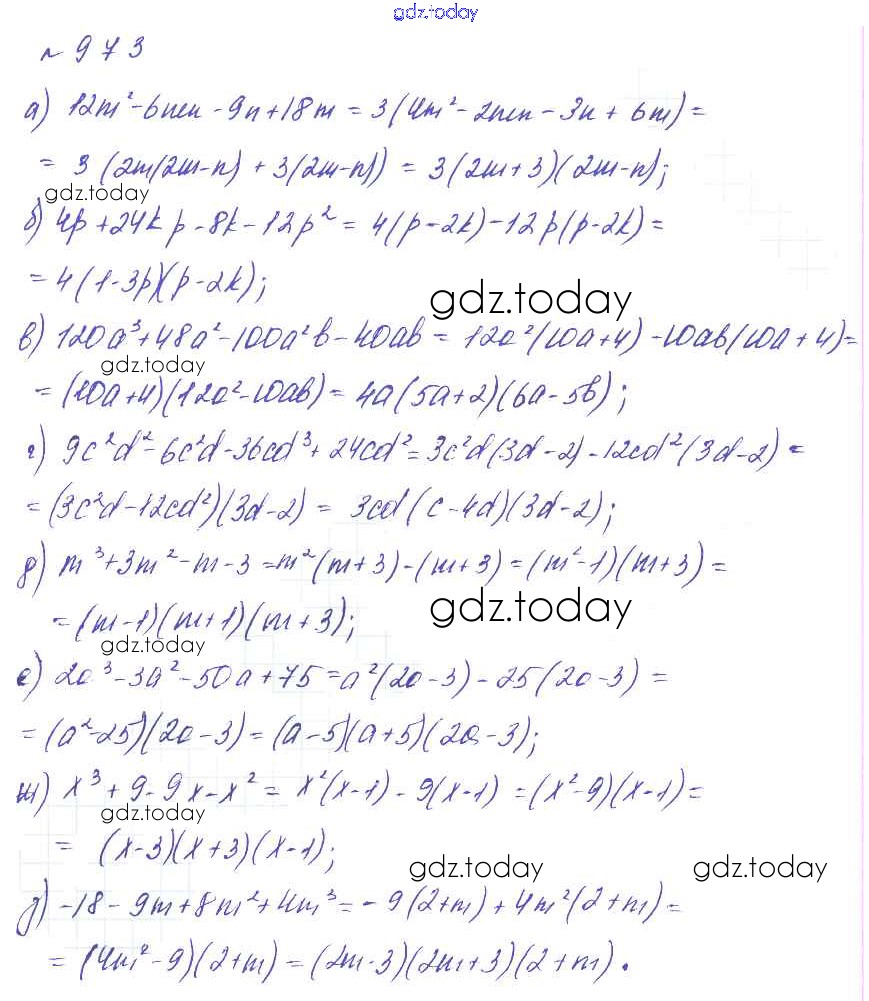 gdz.today
№ 973
а) 12m² - 6mn - 9n + 18m = 3(4m² - 2mn - 3n + 6m) =
= 3(2m(2m-n) + 3(2m-n)) = 3(2m+3)(2m-n);
gdz.today
б) 4p + 24kp - 8k - 12p² = 4(p-2k) - 12p(p-2k) =
= 4(1-3p)(p-2k);
gdz.today
в) 120a³ + 48a² - 100a²b - 40ab = 12a²(10a+4) - 10ab(10a+4) =
gdz.today
= (10a+4)(12a² - 10ab) = 4a(5a+2)(6a-5b);
г) 9c²d² - 6c²d - 36cd³ + 24cd² = 3c²d(3d-2) - 12cd²(3d-2) =
= (3c²d - 12cd²)(3d-2) = 3cd(c-4d)(3d-2);
д) m³ + 3m² - m - 3 = m²(m+3) - (m+3) = (m²-1)(m+3) =
= (m-1)(m+1)(m+3);
gdz.today
gdz.today
е) 2a³ - 3a² - 50a + 75 = a²(2a-3) - 25(2a-3) =
= (a²-25)(2a-3) = (a-5)(a+5)(2a-3);
ж) x³ + 9 - 9x - x² = x²(x-1) - 9(x-1) = (x²-9)(x-1) =
gdz.today
= (x-3)(x+3)(x-1);
gdz.today gdz.today
з) -18 - 9m + 8m² + 4m³ = -9(2+m) + 4m²(2+m) =
= (4m²-9)(2+m) = (2m-3)(2m+3)(2+m).